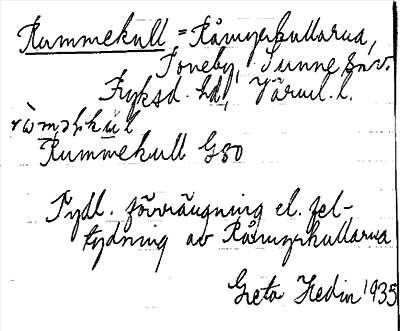 Rummekull = Råmyrkullarna,
Toneby, Sunne sn.
Fryksd. hd, Värml. l.
Rummekull G80
Tydl. förvrängning el. fel-
tydning av Råmyrkullarna
Greta Hedin 1935